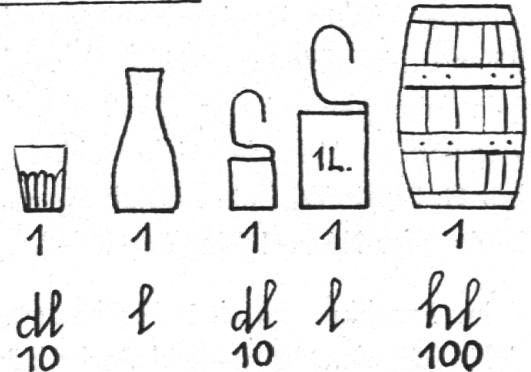 1L.
1 1 1 1 1
dl l dl l hl
10 10 100